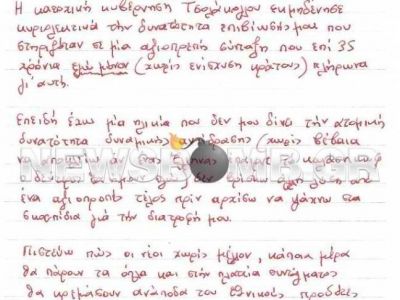 Η κατοχική κυβέρνηση Τσολάκογλου εκμηδένησε
κυριολεκτικά την δυνατότητα επιβίωσής μου που
στηριζόταν σε μία αξιοπρεπή σύνταξη που επί 35
χρόνια εγώ μόνον (χωρίς ενίσχυση κράτους) πλήρωνα
γι' αυτή.
Επειδή έχω μία ηλικία που δεν μου δίνει την ατομική
δυνατότητα δυναμικής αντίδρασης (χωρίς βέβαια
να αποκλείω αν ένας Έλληνας
NEWSBOMB.GR
ένα αξιοπρεπές τέλος πριν αρχίσω να ψάχνω στα
σκουπίδια για την διατροφή μου.
Πιστεύω πως οι νέοι χωρίς μέλλον, κάποια μέρα
θα πάρουν τα όπλα και στην πλατεία συντάγματος
θα κρεμάσουν ανάποδα τους εθνικούς προδότες